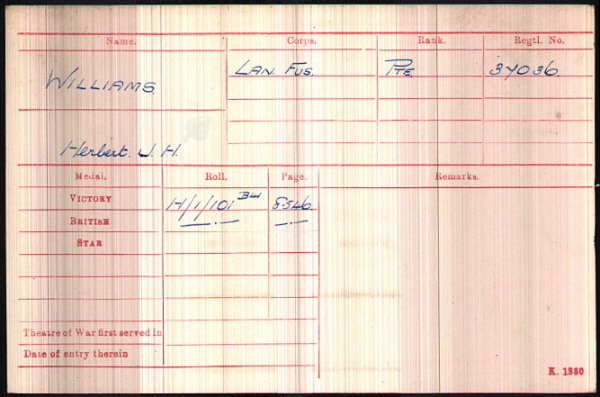 Name. Corps. Rank. Regtl. No.
WILLIAMS LAN. FUS. PTE. 37036.
Herbert. J. H.
Medal. Roll. Page. Remarks.
VICTORY H/1/101 B4 8546
BRITISH —.— —.—
STAR
Theatre of War first served in
Date of entry therein
K. 1380